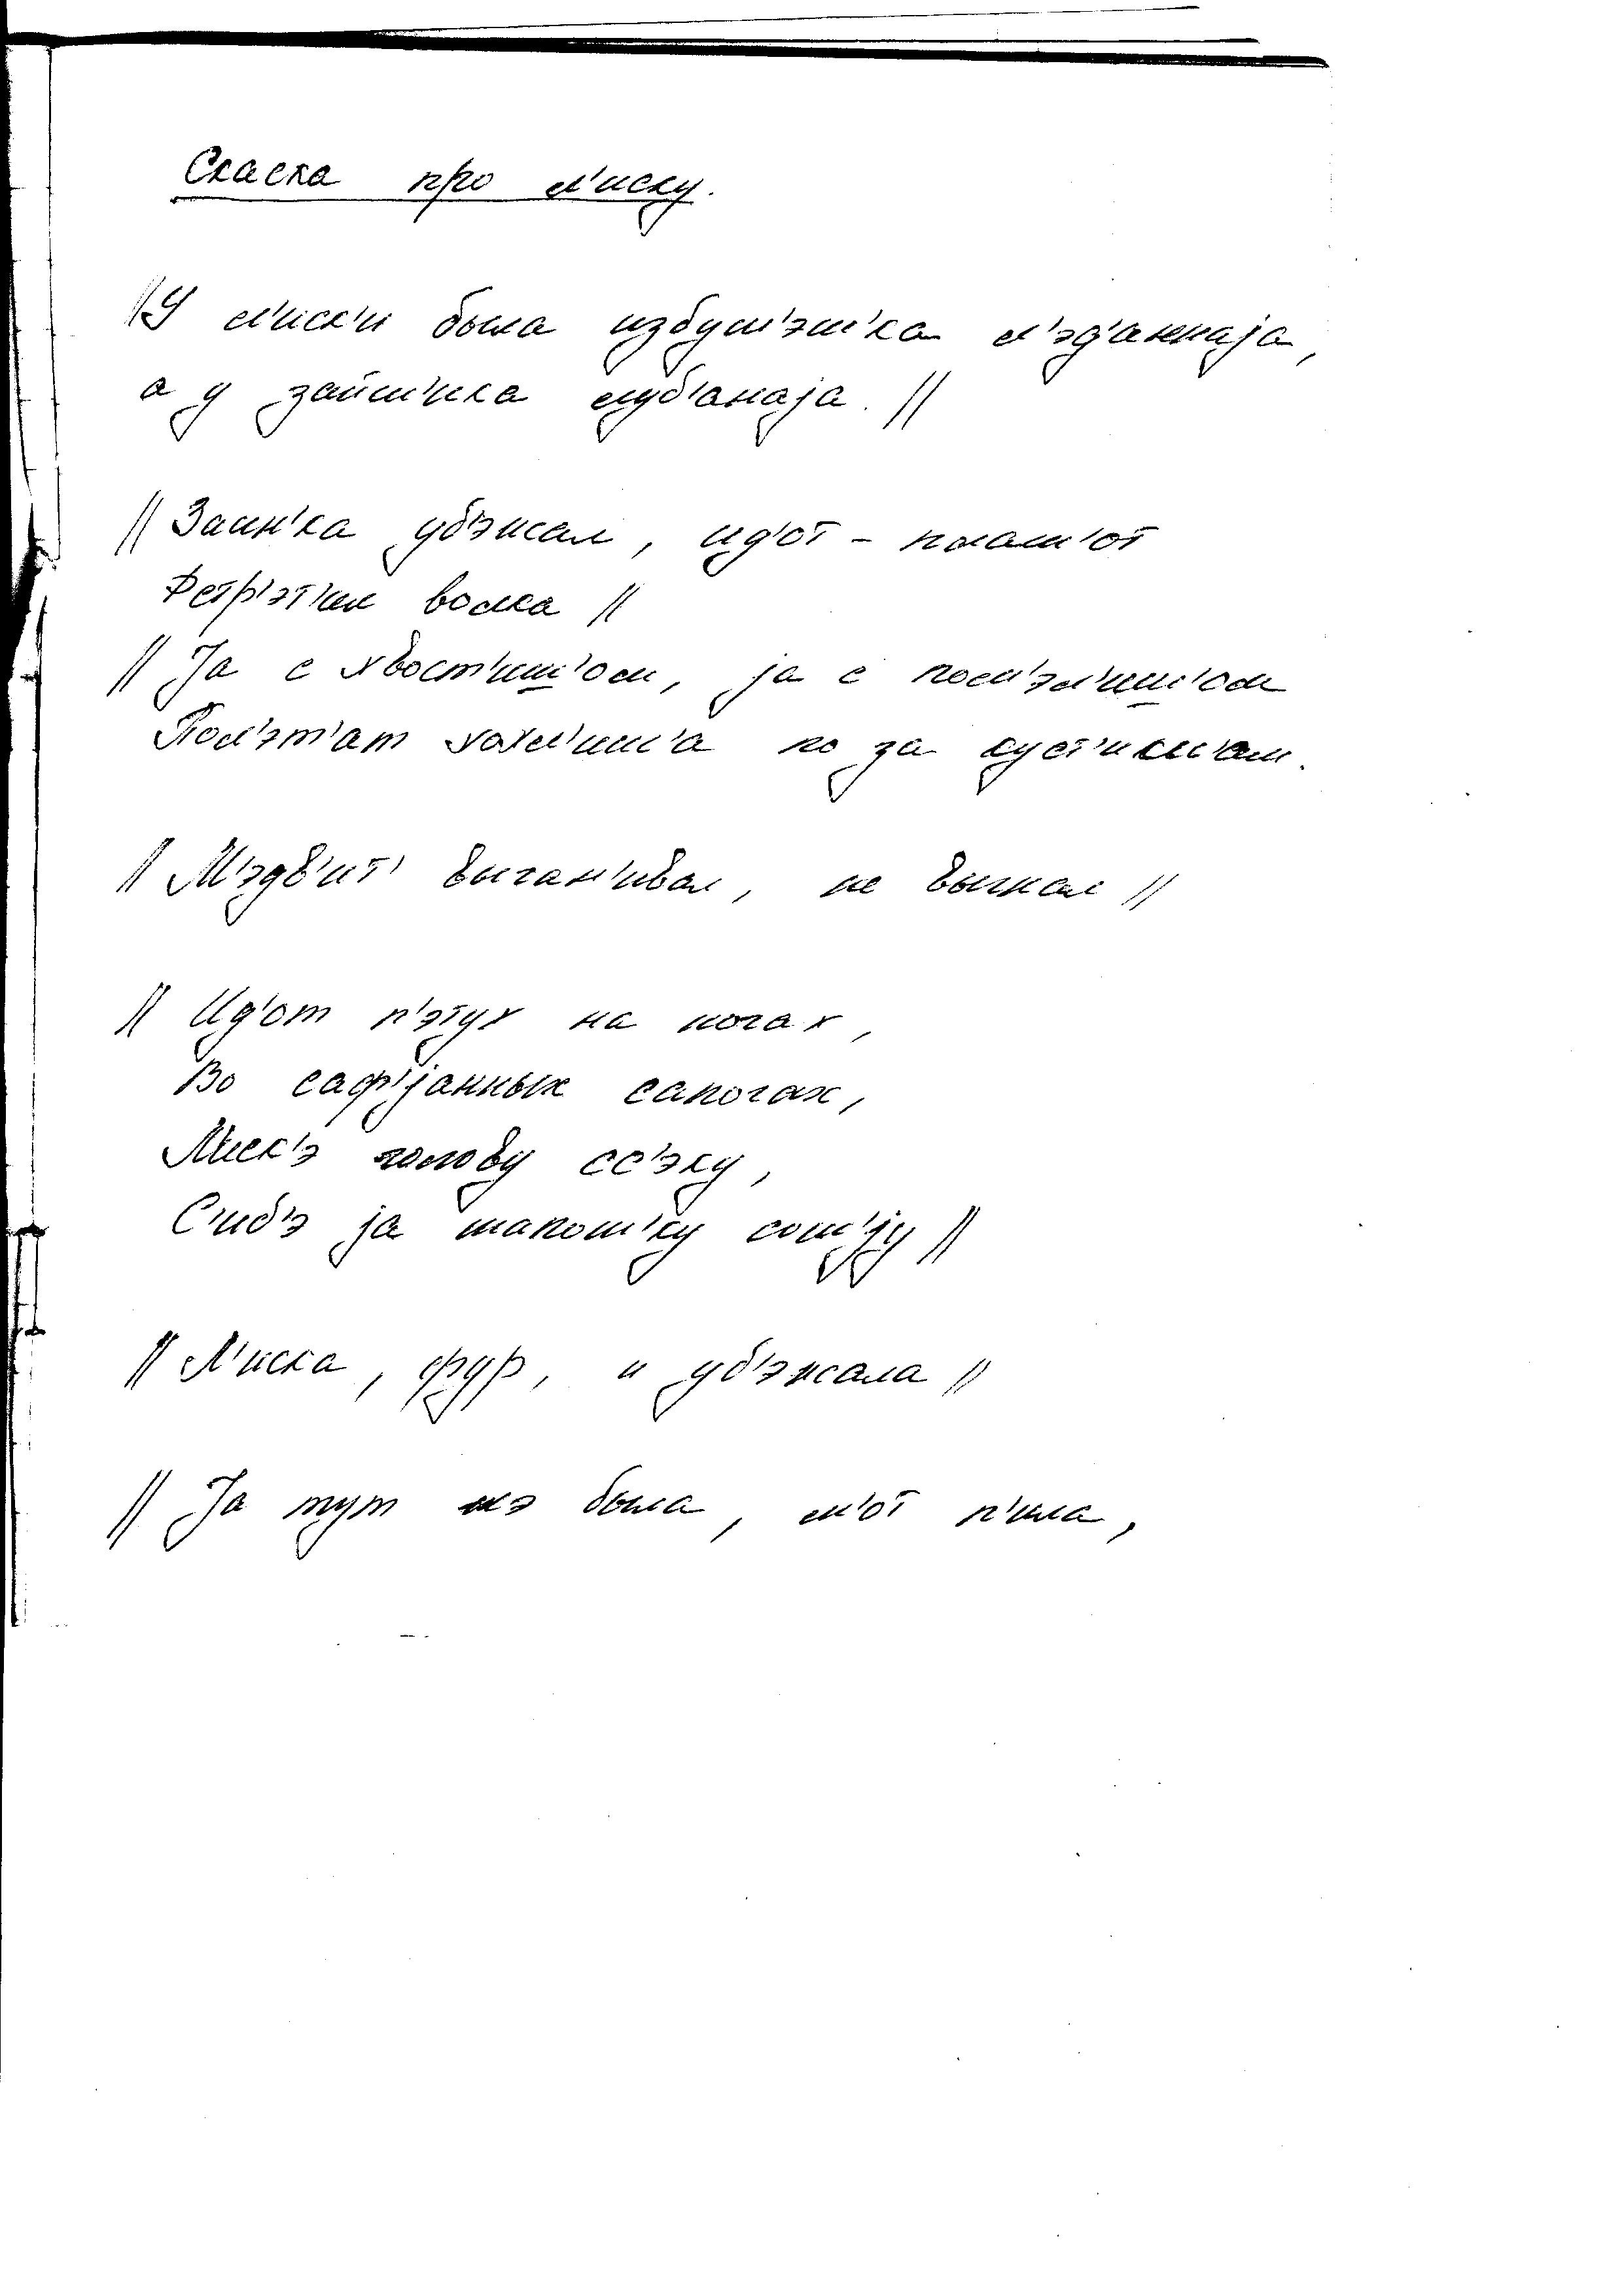 Скаска про л'иску.
// У л'иск'и была избуш'эш'ка л'эд'аннаја,
а у зайш'ика луб'анаја. //
// Заин'ка убэжал, ид'от - плаш'от
Фстр'эт'ил волка //
// Ја с хвост'ищ'ом, ја с пом'эл'ищ'ом
Пол'эт'ат хохл'иш'а по за куст'икш'ам.
// М'эдв'ит' выган'ивал, не выгнал //
// Ид'от п'этух на ногах,
Во саф'јанных сапогах,
Лиск'э голову сс'эку,
С'иб'э ја шапош'ку сош'ју //
// Л'иска, фур, и уб'эжала //
// Ја тут нэ была, м'от п'ила,